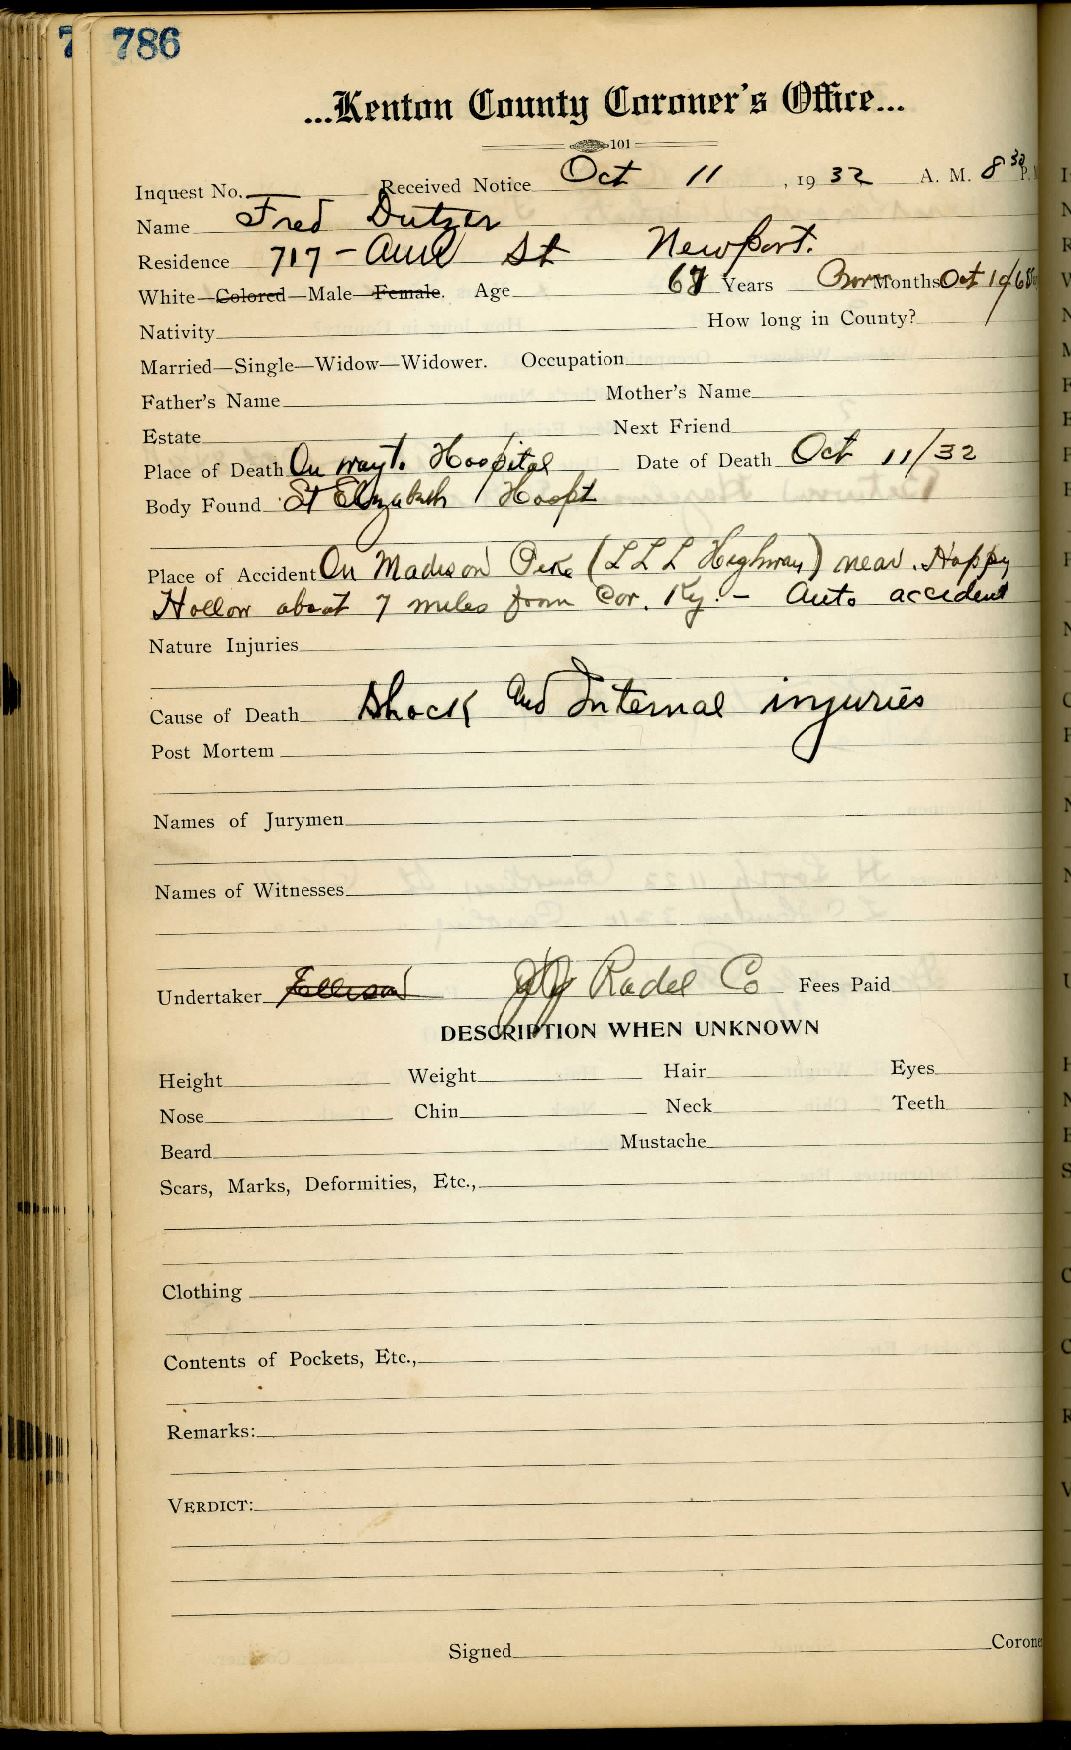 7 786
...Kenton County Coroner's Office...
101
Inquest No. Received Notice Oct 11, 1932 A. M. 8 30 P.
Name Fred Dutzer
Residence 717 - Ann St Newport.
White—Colored—Male—Female. Age 67 Years Born Months Oct 19/65
Nativity How long in County?
Married—Single—Widow—Widower. Occupation
Father's Name Mother's Name
Estate Next Friend
Place of Death On way to Hospital Date of Death Oct 11/32
Body Found St Elizabeth Hospt
Place of Accident On Madison Pike (L L L Highway) near Happy
Hollow about 7 miles from Cov. Ky. - Auto accident
Nature Injuries
Cause of Death Shock and Internal injuries
Post Mortem
Names of Jurymen
Names of Witnesses
Undertaker Radel Co Fees Paid
DESCRIPTION WHEN UNKNOWN
Height Weight Hair Eyes
Nose Chin Neck Teeth
Beard Mustache
Scars, Marks, Deformities, Etc.,
Clothing
Contents of Pockets, Etc.,
Remarks:
VERDICT:
Signed Corone